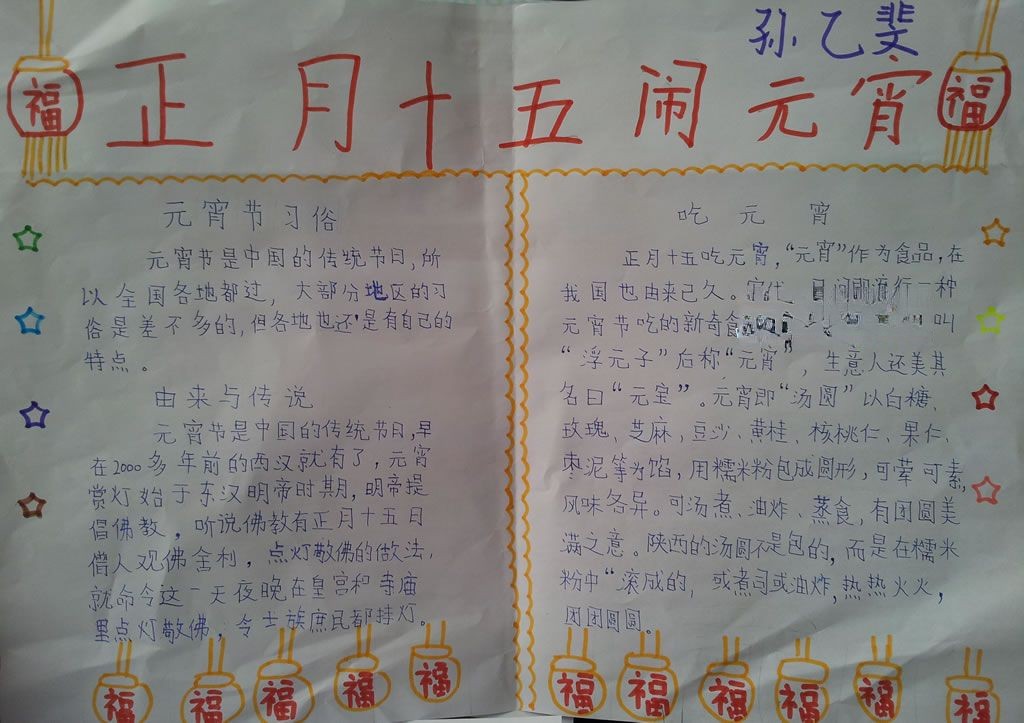 孙乙斐
福
正月十五闹元宵
福
元宵节习俗
元宵节是中国的传统节日,所
以全国各地都过,大部份地区的习
俗是差不多的,但各地也还是有自己的
特点。
由来与传说
元宵节是中国的传统节日,早
在2000多年前的西汉就有了,元宵
赏灯始于东汉明帝时期,明帝提
倡佛教,听说佛教有正月十五日
僧人观佛舍利,点灯敬佛的做法,
就命令这一天夜晚在皇宫和寺庙
里点灯敬佛,令士族庶民都挂灯。
吃元宵
正月十五吃元宵,“元宵”作为食品,在
我国也由来已久。宋代 民间即流行一种
元宵节吃的新奇食 叫
“浮元子”后称“元宵”,生意人还美其
名曰“元宝”。元宵即“汤圆”以白糖、
玫瑰、芝麻,豆沙、黄桂、核桃仁、果仁、
枣泥等为馅,用糯米粉包成圆形,可荤可素,
风味各异。可汤煮、油炸、蒸食,有团圆美
满之意。陕西的汤圆不是包的,而是在糯米
粉中“滚成的,或煮司或油炸,热热火火,
团团圆圆。
福
福
福
福
福
福
福
福
福
福
福